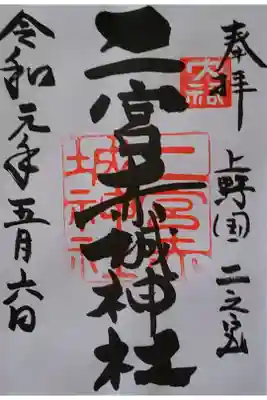 奉拝 上野国二之宮
二宮赤城神社
令和元年五月六日
二宮赤
城神社